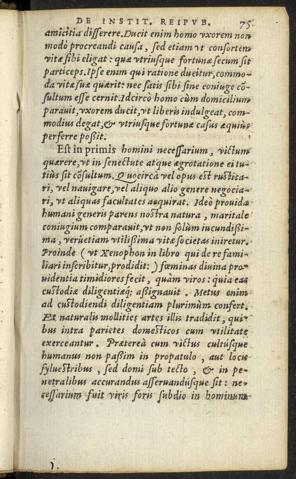 DE INSTIT. REIPVB. 75
amicitia disserere. Ducit enim homo vxorem non
modò procreandi causa, sed etiam vt consortem
vitæ sibi eligat: quæ vtriusque fortunæ secum sit
particeps. Ipse enim qui ratione ducitur, commo-
da vitæ suæ quærit: nec satis sibi sine coniuge cõ-
sultum esse cernit. Idcircò homo cùm domicilium
parauit, vxorem ducit, vt liberis indulgeat, com-
modius degat, & vtriusque fortunæ casus æquius
perferre possit.
Est in primis homini necessarium, victum
quærere, vt in senectute atque ægrotatione ei tu-
tius sit cõsultum. Quocircà vel opus est rustica-
ri, vel nauigare, vel aliquo alio genere negocia-
ri, vt aliquas facultates acquirat. Ideò prouida
humani generis parens nostra natura, maritale
coniugium comparauit, vt non solùm iucundissi-
ma, verùetiam vtilissima vitæ societas iniretur.
Proinde (vt Xenophon in libro qui de re fami-
liari inscribitur, prodidit:) fœminas diuina pro-
uidentia timidiores fecit, quàm viros: quia eas
custodiæ diligentiæq; assignauit. Metus enim
ad custodiendi diligentiam plurimùm confert.
Et naturalis mollities artes illis tradidit, qui-
bus intra parietes domesticos cum vtilitate
exerceantur. Prætereà cum victus cultusque
humanus non passim in propatulo, aut locis
syluestribus, sed domi sub tecto, & in pe-
netralibus accurandus asseruandusque sit: ne-
cessarium fuit viris foris subdio in hominum